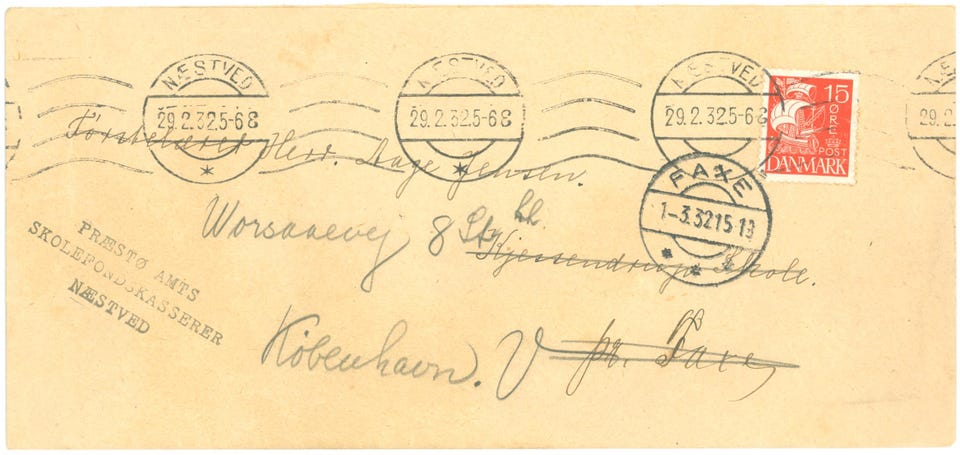 NÆSTVED NÆSTVED NÆSTVED NÆ
29.2.32.5-6 29.2.32.5-6 29.2.32.5-6 29.2
15
ØRE
POST
DANMARK
Førstelærer Herr. Aage Jensen.
FAXE
1-3.3215-18
Worsaaevej 8 St
Skole.
PRÆSTØ AMTS
SKOLEFONDSKASSERER
NÆSTVED
København. V pr. Faxe